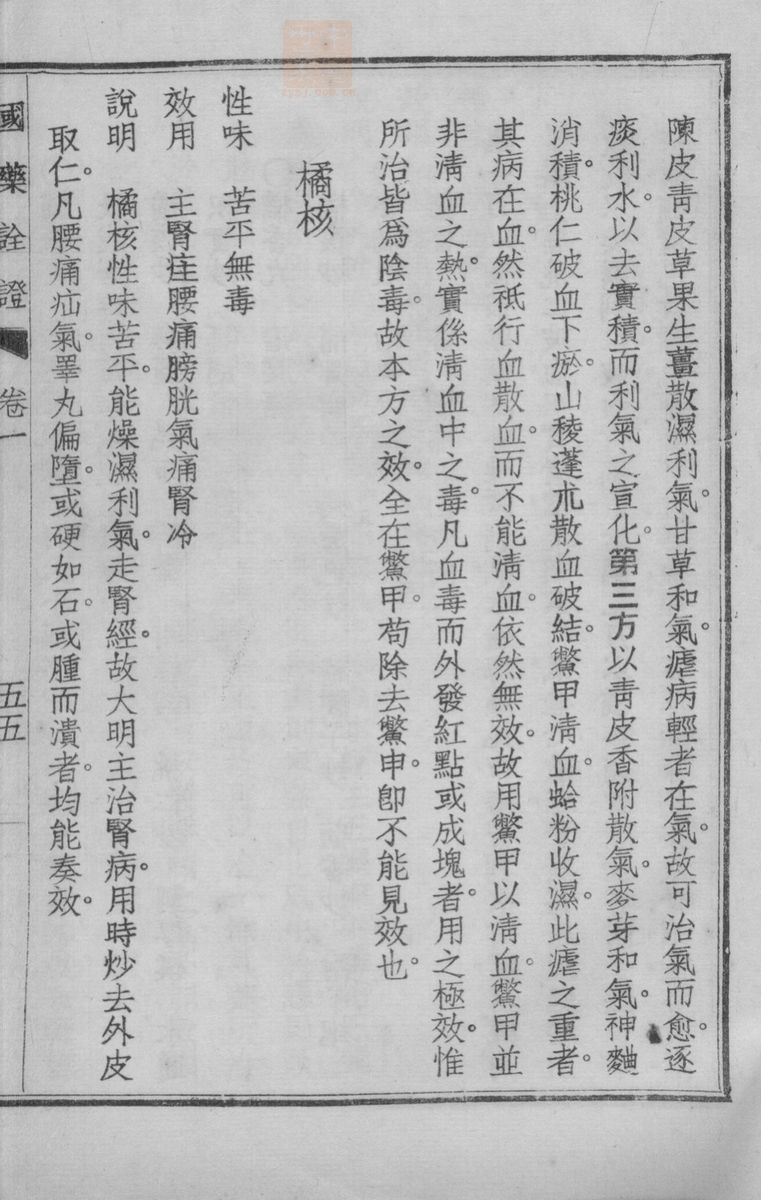 陳皮靑皮草果生薑散濕利氣。甘草和氣。瘧病輕者在氣。故可治氣而愈。逐
痰利水。以去實積。而利氣之宣化。第三方以靑皮香附散氣。麥芽和氣。神麯
消積。桃仁破血下瘀。山稜蓬朮散血破結。鱉甲淸血。蛤粉收濕。此瘧之重者。
其病在血。然祇行血散血。而不能淸血。依然無效。故用鱉甲以淸血。鱉甲並
非淸血之熱。實係淸血中之毒。凡血毒而外發紅點或成塊者。用之極效。惟
所治皆爲陰毒。故本方之效。全在鱉甲。苟除去鱉申。卽不能見效也。
橘核
性味　苦平無毒
效用　主腎疰腰痛膀胱氣痛腎冷
說明　橘核性味苦平。能燥濕利氣。走腎經。故大明主治腎病。用時炒去外皮
取仁。凡腰痛疝氣。睪丸偏墮。或硬如石。或腫而潰者。均能奏效。
國藥詮證　卷一　五五